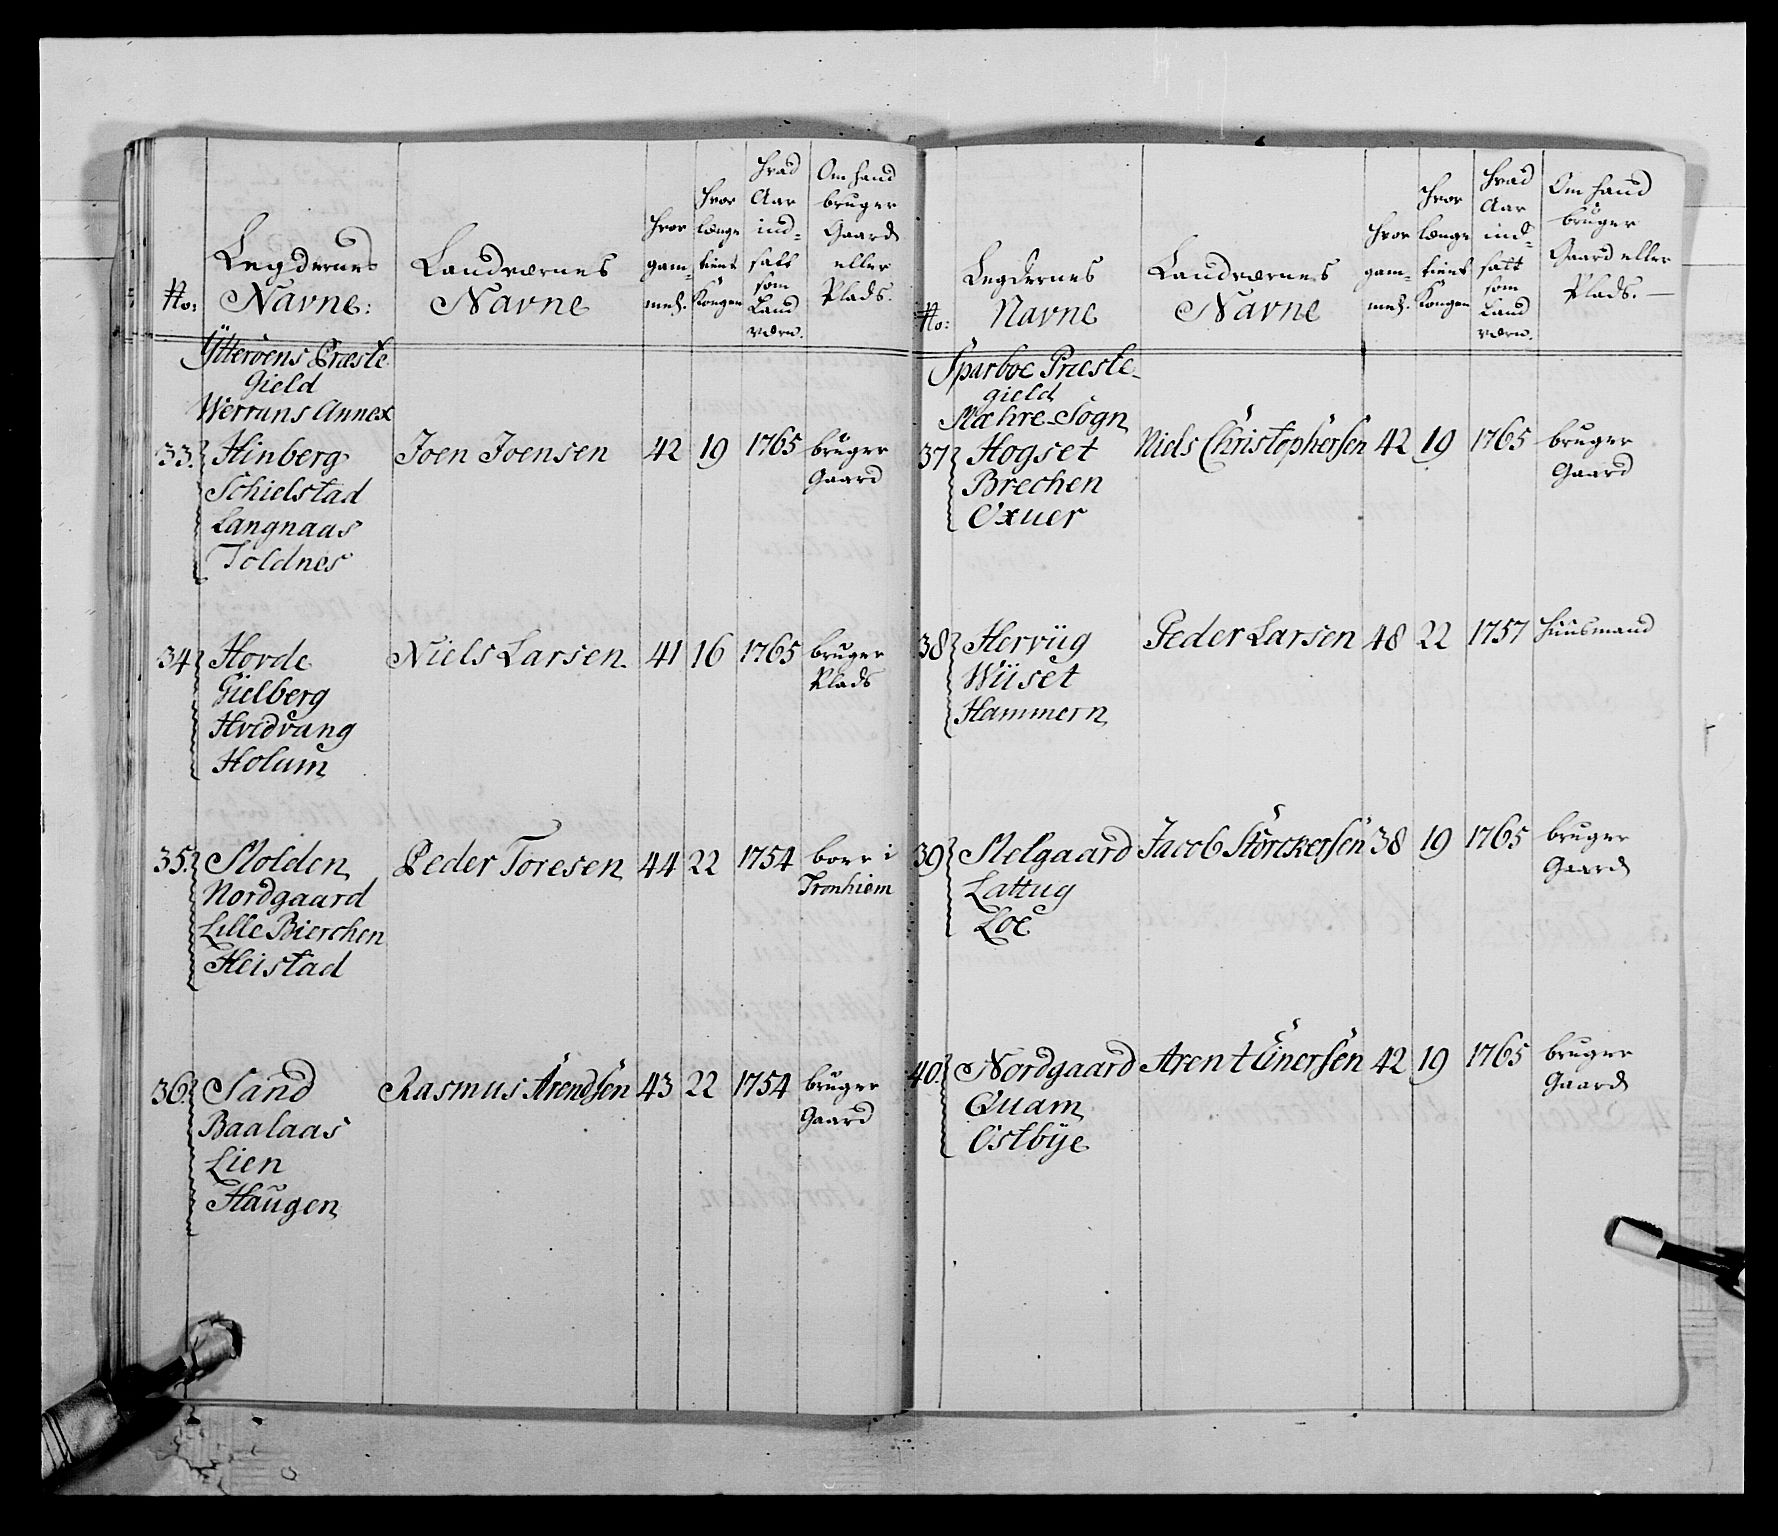 No:
Legdernes
Navne:
Landværnes
Navne
Hvor
gam-
mel.
Hvor
længe
tient
Kongen
Hvad
Aar
ind-
satt
som
Land
værn.
Om hand
bruger
Gaard
eller
Plads.
Ÿtterøens Præste
Gield
Werrans Annex
33. Hinberg Joen Joensen 42 19 1765 bruger
Schielstad Gaard
Langnaas
Toldnes
34 Horde Niels Larsen 41 16 1765 bruger
Gielberg Plads
Hvedvang
Holum
35. Molden Peder Toresen 44 22 1754 boer i
Nordgaard Tronhiem
Lille Bierchen
Heistad
36. Sand Rasmus Arendsen 43 22 1754 bruger
Baalaas Gaard
Lien
Haugen
No:
Legdernes
Navne
Landværnes
Navne
Hvor
gam-
mel.
Hvor
længe
tient
Kongen
Hvad
Aar
ind-
satt
som
Land
værn.
Om hand
bruger
Gaard eller
Plads.
Sparboe Præste-
gield
Mæhre Sogn
37 Hogset Niels Christophersen 42 19 1765 bruger
Brechen Gaard
Oxuer
38 Herviig Peder Larsen 48 22 1757 Huusmand
Wiiset
Hammern
39 Melgaard Jacob Störckersen 38 19 1765 bruger
Lattug Gaard
Loe
40. Nordgaard Arent Einersen 42 19 1765 bruger
Quam Gaard
Ostbye